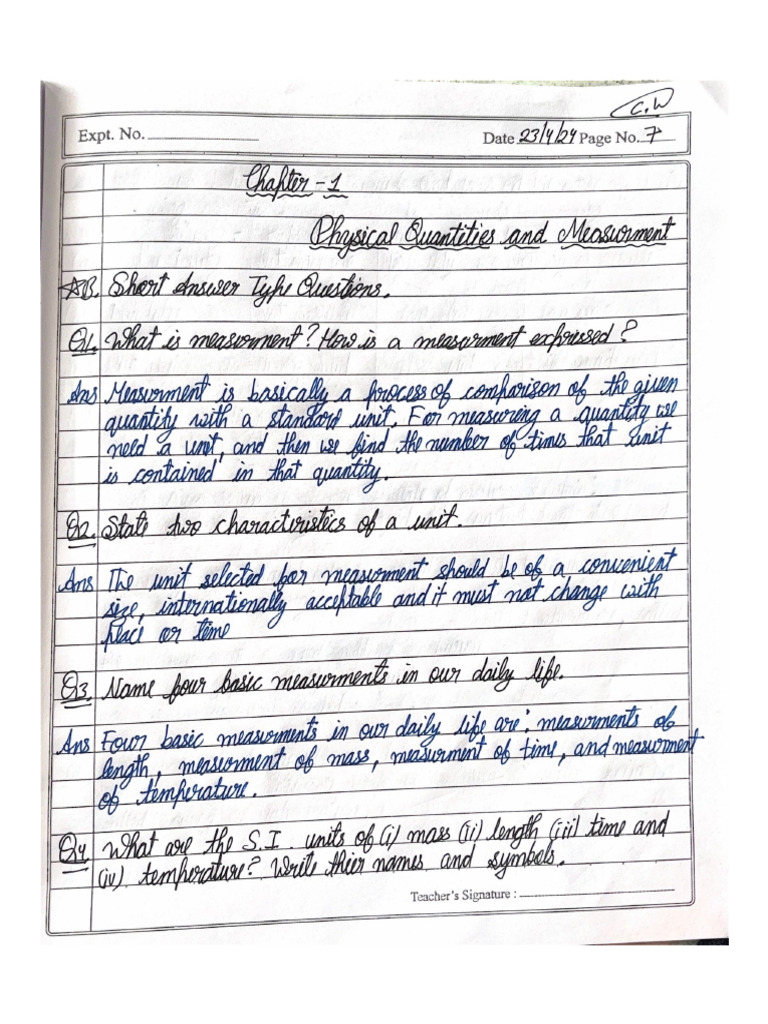 C.W
Expt. No.
Date 23/4/24 Page No. 7
Chapter - 1
Physical Quantities and Measurment
*B. Short Answer Type Questions.
Q1. What is measurment? How is a measurment expressed?
Ans Measurment is basically a process of comparison of the given
quantity with a standard unit. For measuring a quantity we
need a unit, and then we find the number of times that unit
is contained in that quantity.
Q2. State two characteristics of a unit.
Ans The unit selected for measurment should be of a convenient
size, internationally acceptable and it must not change with
place or time
Q3. Name four basic measurments in our daily life.
Ans Four basic measurments in our daily life are: measurments of
length, measurment of mass, measurment of time, and measurment
of temperature.
Q4 What are the S.I. units of (i) mass (ii) length (iii) time and
(iv) temperature? Write thier names and symbols.
Teacher's Signature :